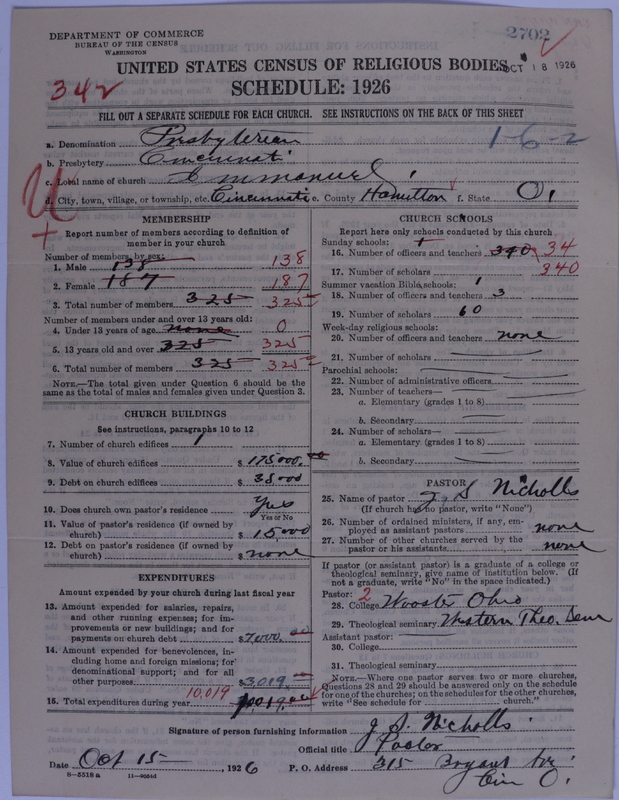 DEPARTMENT OF COMMERCE
BUREAU OF THE CENSUS
WASHINGTON
2702
OCT 18 1926
UNITED STATES CENSUS OF RELIGIOUS BODIES
342
SCHEDULE: 1926
FILL OUT A SEPARATE SCHEDULE FOR EACH CHURCH. SEE INSTRUCTIONS ON THE BACK OF THIS SHEET
a. Denomination Presbyterian
1-6-2
b. Presbytery Cincinnati
c. Local name of church Emmanuel
d. City, town, village, or township, etc. Cincinnati e. County Hamilton f. State O.
U
MEMBERSHIP
Report number of members according to definition of member in your church
Number of members, by sex:
1. Male 138 138
2. Female 187 187
3. Total number of members 325 325
Number of members under and over 13 years old:
4. Under 13 years of age none 0
5. 13 years old and over 325 325
6. Total number of members 325 325
NOTE.—The total given under Question 6 should be the
same as the total of males and females given under Question 3.
CHURCH BUILDINGS
See instructions, paragraphs 10 to 12
7. Number of church edifices 1
8. Value of church edifices $ 175000.
9. Debt on church edifices $ 35000
10. Does church own pastor's residence Yes
Yes or No
11. Value of pastor's residence (if owned by
church) $ 15,000
12. Debt on pastor's residence (if owned by
church) $ none
EXPENDITURES
Amount expended by your church during last fiscal year
13. Amount expended for salaries, repairs,
and other running expenses; for im-
provements or new buildings; and for
payments on church debt $7,000.00
14. Amount expended for benevolences, in-
cluding home and foreign missions; for
denominational support; and for all
other purposes $3,019.
10,019
15. Total expenditures during year 10019.00
CHURCH SCHOOLS
Report here only schools conducted by this church
Sunday schools: 1
16. Number of officers and teachers 340 34
17. Number of scholars 340
Summer vacation Bible schools: 1
18. Number of officers and teachers 3
19. Number of scholars 60
Week-day religious schools:
20. Number of officers and teachers none
21. Number of scholars
Parochial schools:
22. Number of administrative officers
23. Number of teachers—
a. Elementary (grades 1 to 8)
b. Secondary
24. Number of scholars—
a. Elementary (grades 1 to 8)
b. Secondary
PASTOR
25. Name of pastor J. S Nicholls
(If church has no pastor, write "None")
26. Number of ordained ministers, if any, em-
ployed as assistant pastors none
27. Number of other churches served by the
pastor or his assistants none
If pastor (or assistant pastor) is a graduate of a college or
theological seminary, give name of institution below. (If
not a graduate, write "No" in the space indicated.)
Pastor: 2
28. College Wooster Ohio
29. Theological seminary Western Theo. Sem
Assistant pastor:
30. College
31. Theological seminary
NOTE.—Where one pastor serves two or more churches,
Questions 28 and 29 should be answered only on the schedule
for one of the churches; on the schedules for the other churches,
write "See schedule for church."
Signature of person furnishing information J. S. Nicholls
Official title Pastor
Date Oct 15 , 1926 P. O. Address 315 Bryant Ave
Cin O.
8—5518 a 11—9054d